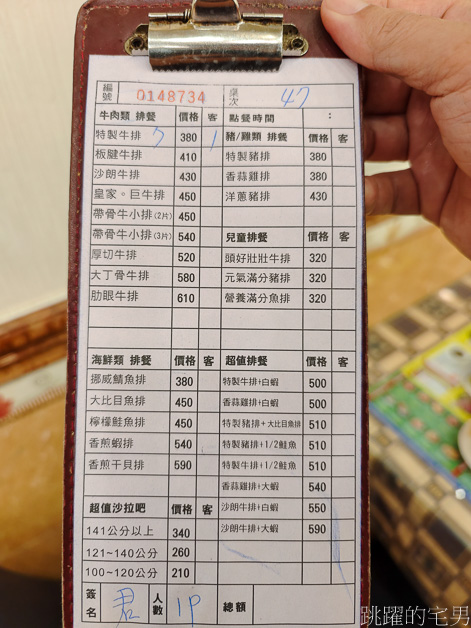 編號 0148734 桌次 47
牛肉類 排餐 價格 客 點餐時間 :
特製牛排 7 380 1 豬/雞類 排餐 價格 客
板腱牛排 410 特製豬排 380
沙朗牛排 430 香蒜雞排 380
皇家。巨牛排 450 洋蔥豬排 430
帶骨牛小排(2片) 450
帶骨牛小排(3片) 540 兒童排餐 價格 客
厚切牛排 520 頭好壯壯牛排 320
大丁骨牛排 580 元氣滿分豬排 320
肋眼牛排 610 營養滿分魚排 320
海鮮類 排餐 價格 客 超值排餐 價格 客
挪威鯖魚排 380 特製牛排+白蝦 500
大比目魚排 450 香蒜雞排+白蝦 500
檸檬鮭魚排 450 特製豬排+大比目魚排 510
香煎蝦排 540 特製豬排+1/2鮭魚 510
香煎干貝排 590 特製牛排+1/2鮭魚 510
香蒜雞排+大蝦 540
超值沙拉吧 價格 客 沙朗牛排+白蝦 550
141公分以上 340 沙朗牛排+大蝦 590
121~140公分 260
100~120公分 210
簽名 君 人數 1P 總額
跳躍的宅男